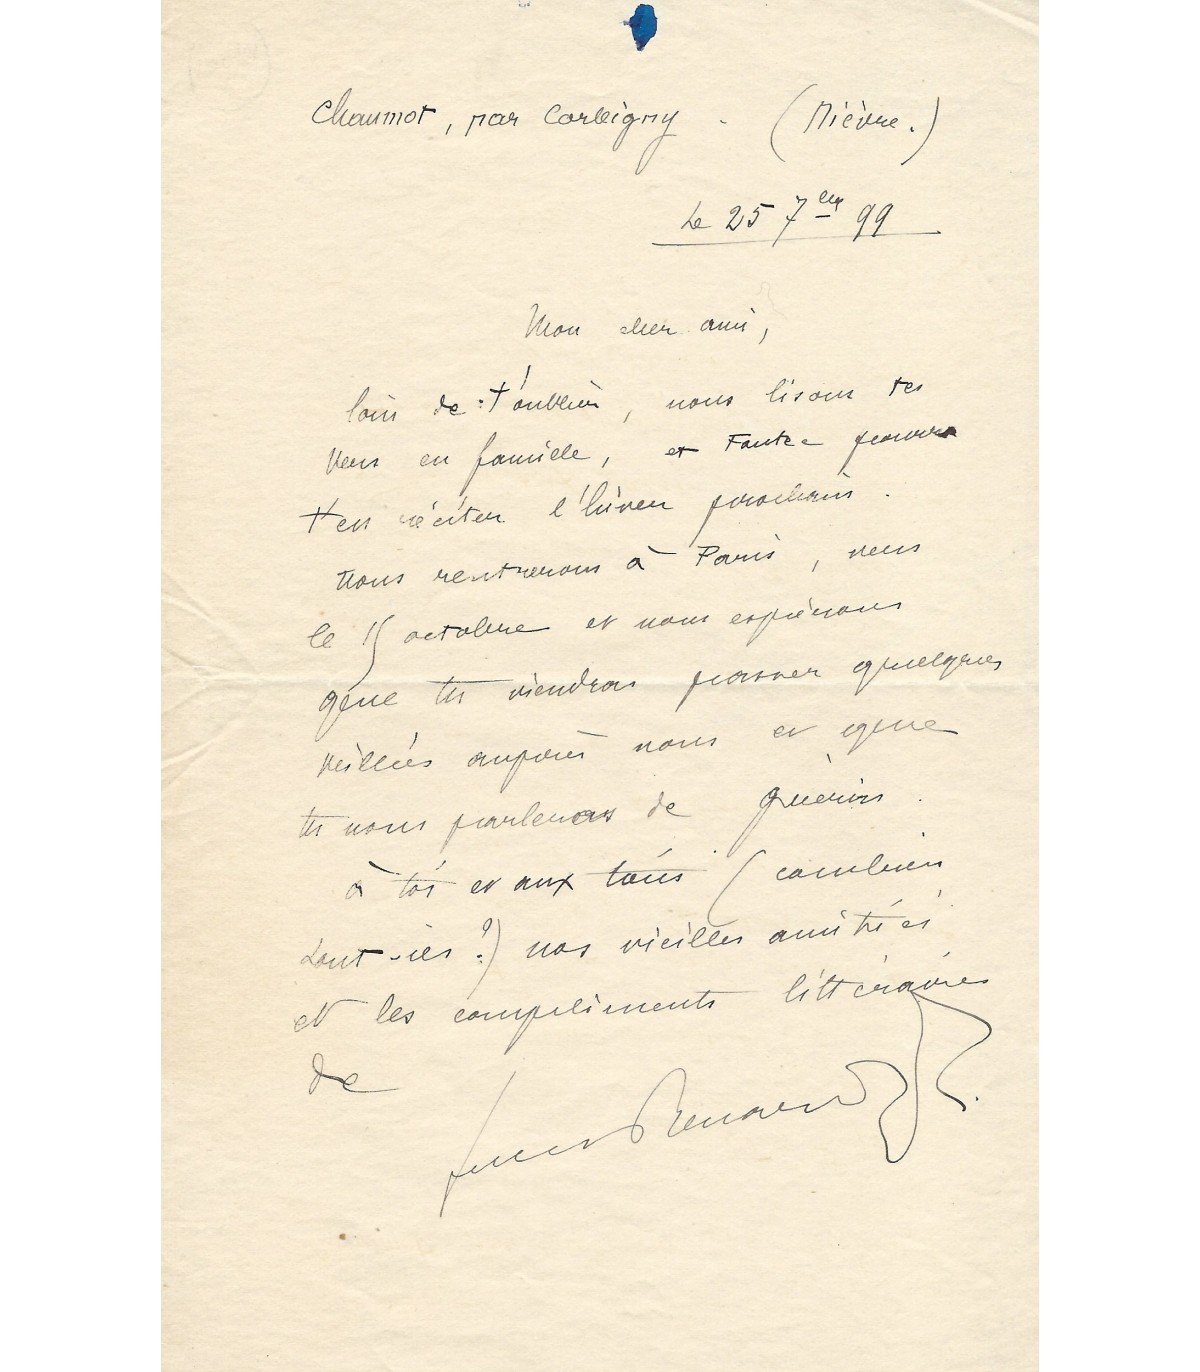 Chaumot, par Corbigny - (Nièvre.)
Le 25 7bre 99
Mon cher ami,
loin de t'oublier, nous lisons tes
vers en famille, et Fantec pourra
t'en réciter l'hiver prochain.
Nous rentrerons à Paris, vers
le 15 octobre et nous espérons
que tu viendras passer quelques
veillées auprès nous et que
tu nous parleras de Guérin.
à toi et aux tiens (combien
sont-ils ?) nos vieilles amitiés
et les compliments littéraires
de
Jules Renard